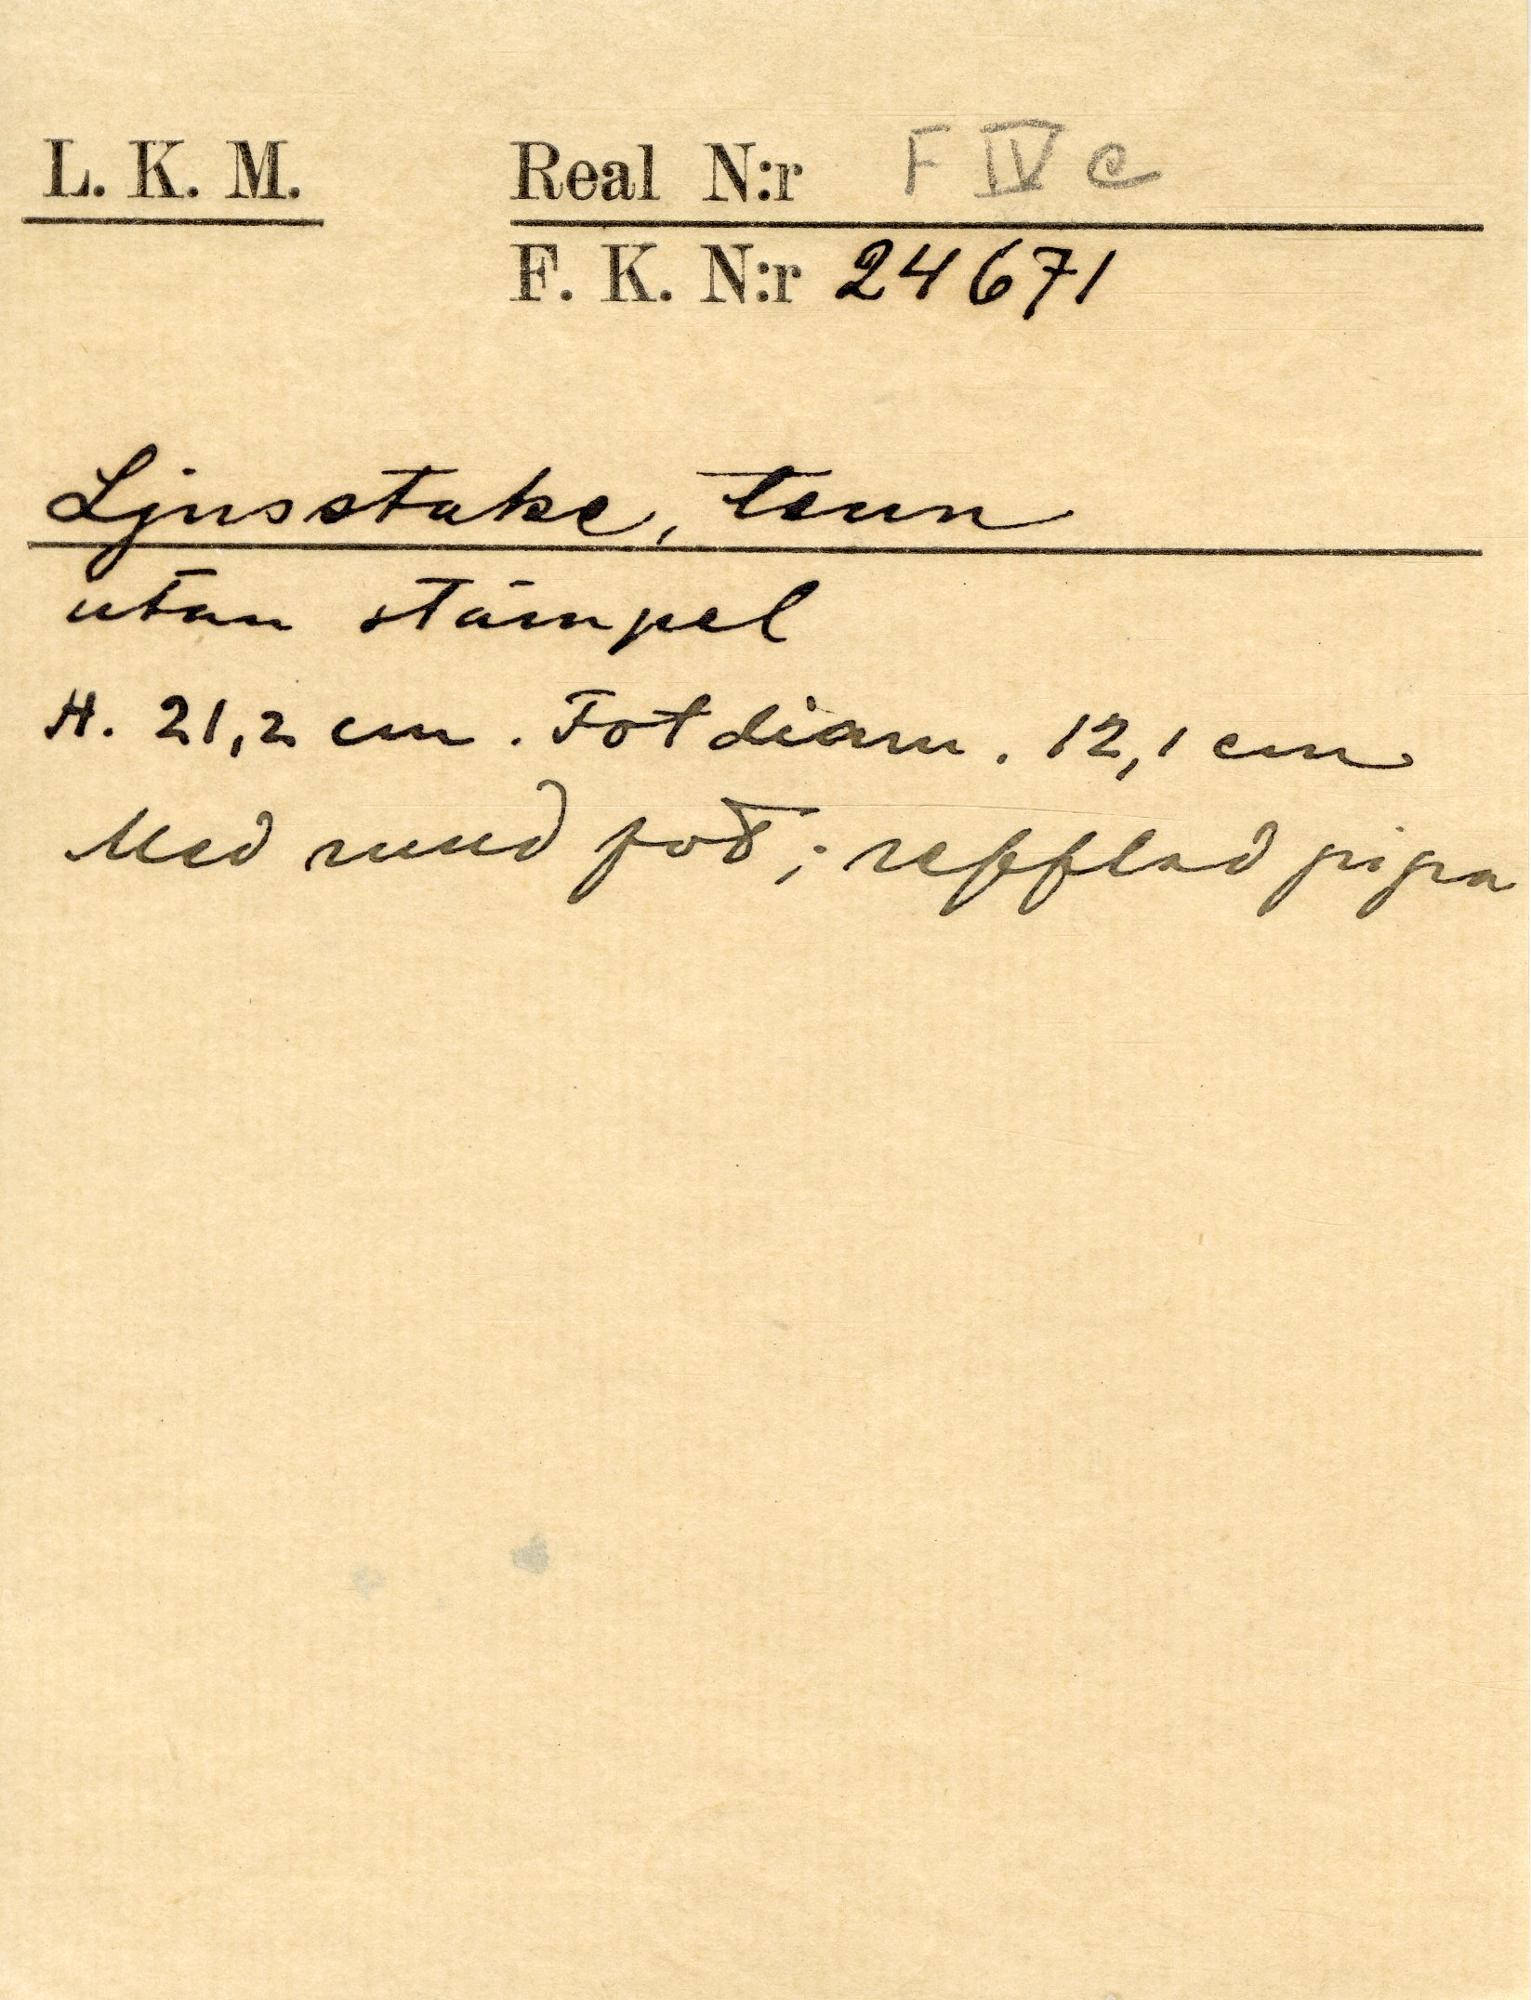 L. K. M. Real N:r F IV c
F. K. N:r 24671
Ljusstake, tenn
utan stämpel
H. 21,2 cm. Fotdiam. 12,1 cm
Med rund fot; refflad pipa